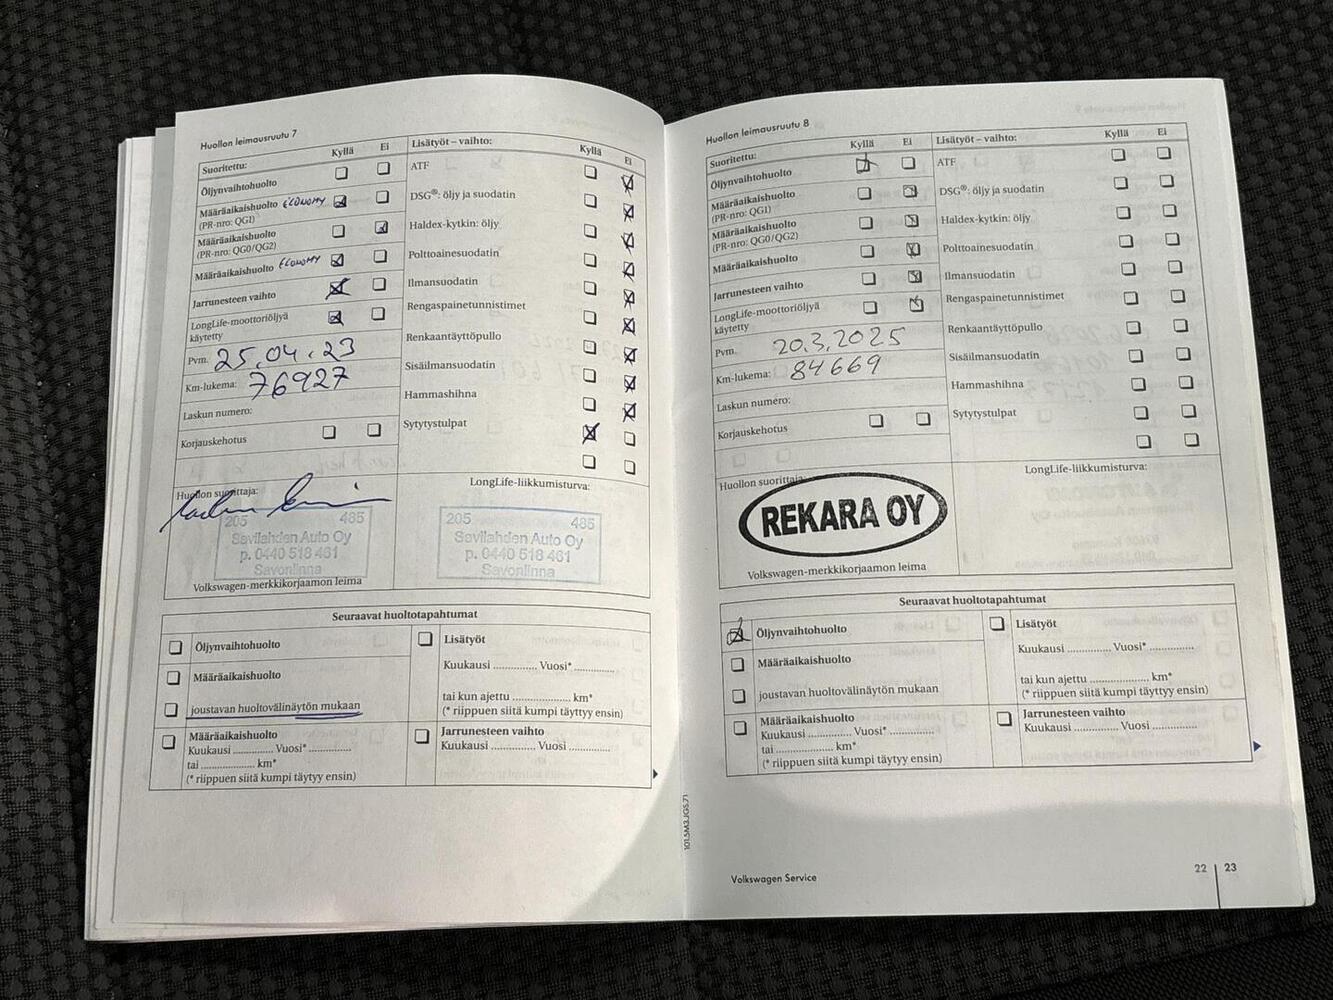 Huollon leimausruutu 7
Suoritettu: Kyllä Ei
Öljynvaihtohuolto
Määräaikaishuolto ECONOMY
(PR-nro: QG1)
Määräaikaishuolto
(PR-nro: QG0/QG2)
Määräaikaishuolto ECONOMY
Jarrunesteen vaihto
LongLife-moottoriöljyä
käytetty
Pvm. 25.04.23
Km-lukema: 76927
Laskun numero:
Korjauskehotus
Lisätyöt – vaihto: Kyllä Ei
ATF
DSG®: öljy ja suodatin
Haldex-kytkin: öljy
Polttoainesuodatin
Ilmansuodatin
Rengaspainetunnistimet
Renkaantäyttöpullo
Sisäilmansuodatin
Hammashihna
Sytytystulpat
Huollon suorittaja:
205 485
Savilahden Auto Oy
p. 0440 518 461
Savonlinna
Volkswagen-merkkikorjaamon leima
LongLife-liikkumisturva:
205 485
Savilahden Auto Oy
p. 0440 518 461
Savonlinna
Seuraavat huoltotapahtumat
Öljynvaihtohuolto
Määräaikaishuolto
joustavan huoltovälinäytön mukaan
Määräaikaishuolto
Kuukausi .............. Vuosi* ..............
tai .................. km*
(* riippuen siitä kumpi täytyy ensin)
Lisätyöt
Kuukausi .............. Vuosi* ..............
tai kun ajettu .................... km*
(* riippuen siitä kumpi täyttyy ensin)
Jarrunesteen vaihto
Kuukausi .............. Vuosi ..............
101.5M3.JGS.71
Huollon leimausruutu 8
Suoritettu: Kyllä Ei
Öljynvaihtohuolto
Määräaikaishuolto
(PR-nro: QG1)
Määräaikaishuolto
(PR-nro: QG0/QG2)
Määräaikaishuolto
Jarrunesteen vaihto
LongLife-moottoriöljyä
käytetty
Pvm. 20.3.2025
Km-lukema: 84669
Laskun numero:
Korjauskehotus
Lisätyöt – vaihto: Kyllä Ei
ATF
DSG®: öljy ja suodatin
Haldex-kytkin: öljy
Polttoainesuodatin
Ilmansuodatin
Rengaspainetunnistimet
Renkaantäyttöpullo
Sisäilmansuodatin
Hammashihna
Sytytystulpat
Huollon suorittaja:
REKARA OY
Volkswagen-merkkikorjaamon leima
LongLife-liikkumisturva:
Seuraavat huoltotapahtumat
Öljynvaihtohuolto
Määräaikaishuolto
joustavan huoltovälinäytön mukaan
Määräaikaishuolto
Kuukausi .............. Vuosi* ..............
tai .................. km*
(* riippuen siitä kumpi täytyy ensin)
Lisätyöt
Kuukausi .............. Vuosi* ..............
tai kun ajettu .................... km*
(* riippuen siitä kumpi täyttyy ensin)
Jarrunesteen vaihto
Kuukausi .............. Vuosi ..............
Volkswagen Service
22 23